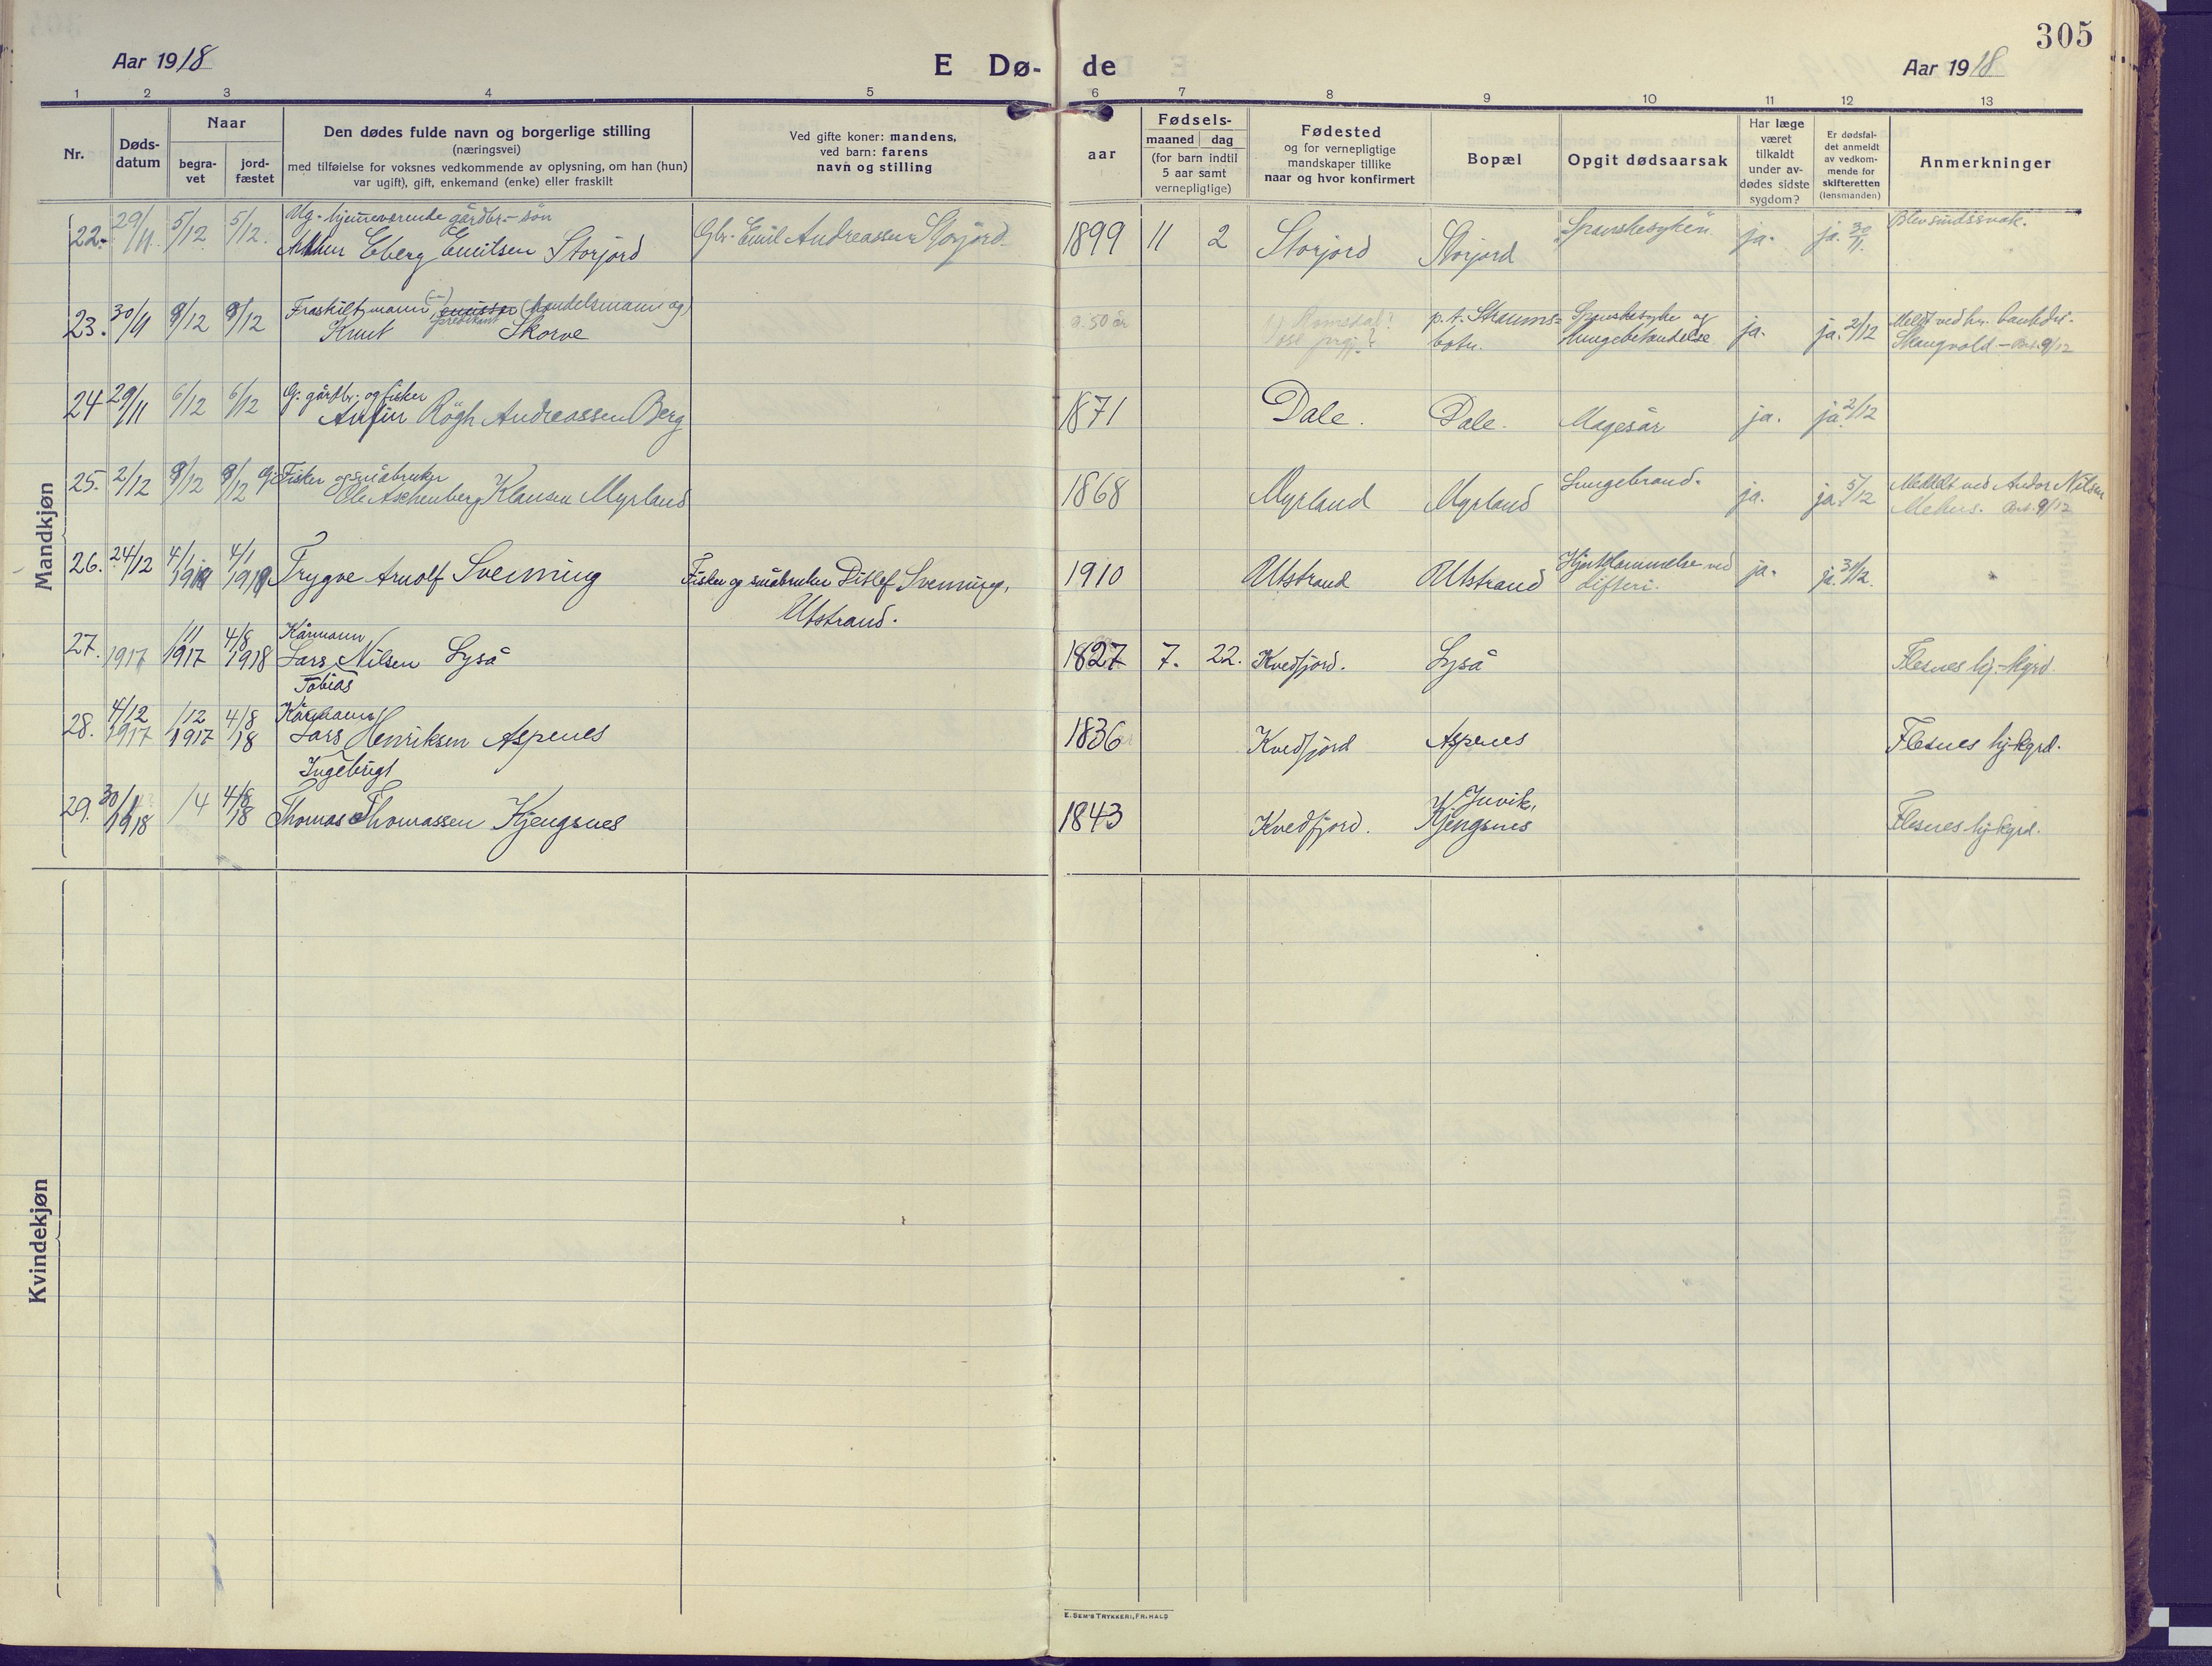 305
Aar 1918
E Dø-
de
Aar 1918
1 2 3 4 5 6 7 8 9 10 11 12 13
Nr.
Døds-
datum
Naar
begra-
vet
jord-
fæstet
Den dødes fulde navn og borgerlige stilling
(næringsvei)
med tilføielse for voksnes vedkommende av oplysning, om han (hun)
var ugift), gift, enkemand (enke) eller fraskilt
Ved gifte koner: mandens,
ved barn: farens
navn og stilling
aar
Fødsels-
maaned dag
(for barn indtil
5 aar samt
vernepligtige)
Fødested
og for vernepligtige
mandskaper tillike
naar og hvor konfirmert
Bopæl
Opgit dødsaarsak
Har læge
været
tilkaldt
under av-
dødes sidste
sygdom?
Er dødsfal-
det anmeldt
av vedkom-
mende for
skifteretten
(lensmanden)
Anmerkninger
Mandkjøn
Ug. hjemmeværende gårdbr.- søn
22. 29/11. 5/12 5/12. Eberg Emilsen Storjord Gbr. Emil Andreassen Storjord 1899 11 2 Storjord Storjord Spanskesyken ja. ja. 30/11. Blev sindssvak.
Fraskilt mann (handelsmann og)
predikant
23. 30/11 8/12 8/12 Knut Skorve a. 50 år Romsdal? p. t. Straums-
botn. Spanskesyke og
lungebetendelse ja. ja. 2/12 Meldt ved hr.
Skangvold. - 9/12
G. gårdbr. og fisker
24 29/11 6/12 6/12 Anfin Rögh Andreassen Berg 1871 Dale. Dale. Magesår ja. ja. 2/12
G. Fisker og småbruker
25. 2/12 8/12 8/12 Ole Aschenberg Klausen Myrland 1868 Myrland Myrland Lungebrand. ja. ja. 5/12 Meddelt ved Andor Nilsen
Mehus. 9/12
26. 24/12 4/1 1919 4/1 1919 Trygve Arnolf Svenning Fisker og småbruker Ditlef Svenning,
Utstrand. 1910 Utstrand Utstrand Hjertelammelse ved
difteri. ja. ja. 31/12.
Kårmann
27. 1917 /11 1917 4/8 1918 Lars Nilsen Lyså 1827 7. 22. Kvedfjord. Lyså Flesnes hj.-kgrd.
Tobias
Kårmann
28. 4/12 1917 /12 1917 4/8 18 Lars Henriksen Aspenes 1836 Kvedfjord Aspenes Flesnes hj-kgrd.
Ingebrigt
29. 30/ 1918 /4 4/8 18 Thomas Thomassen Kjengsnes 1843 Kvedfjord. Juvik,
Kjengsnes Flesnes hj-kgrd.
Kvindekjøn
E. SEM'S TRYKKERI, FR.HALD